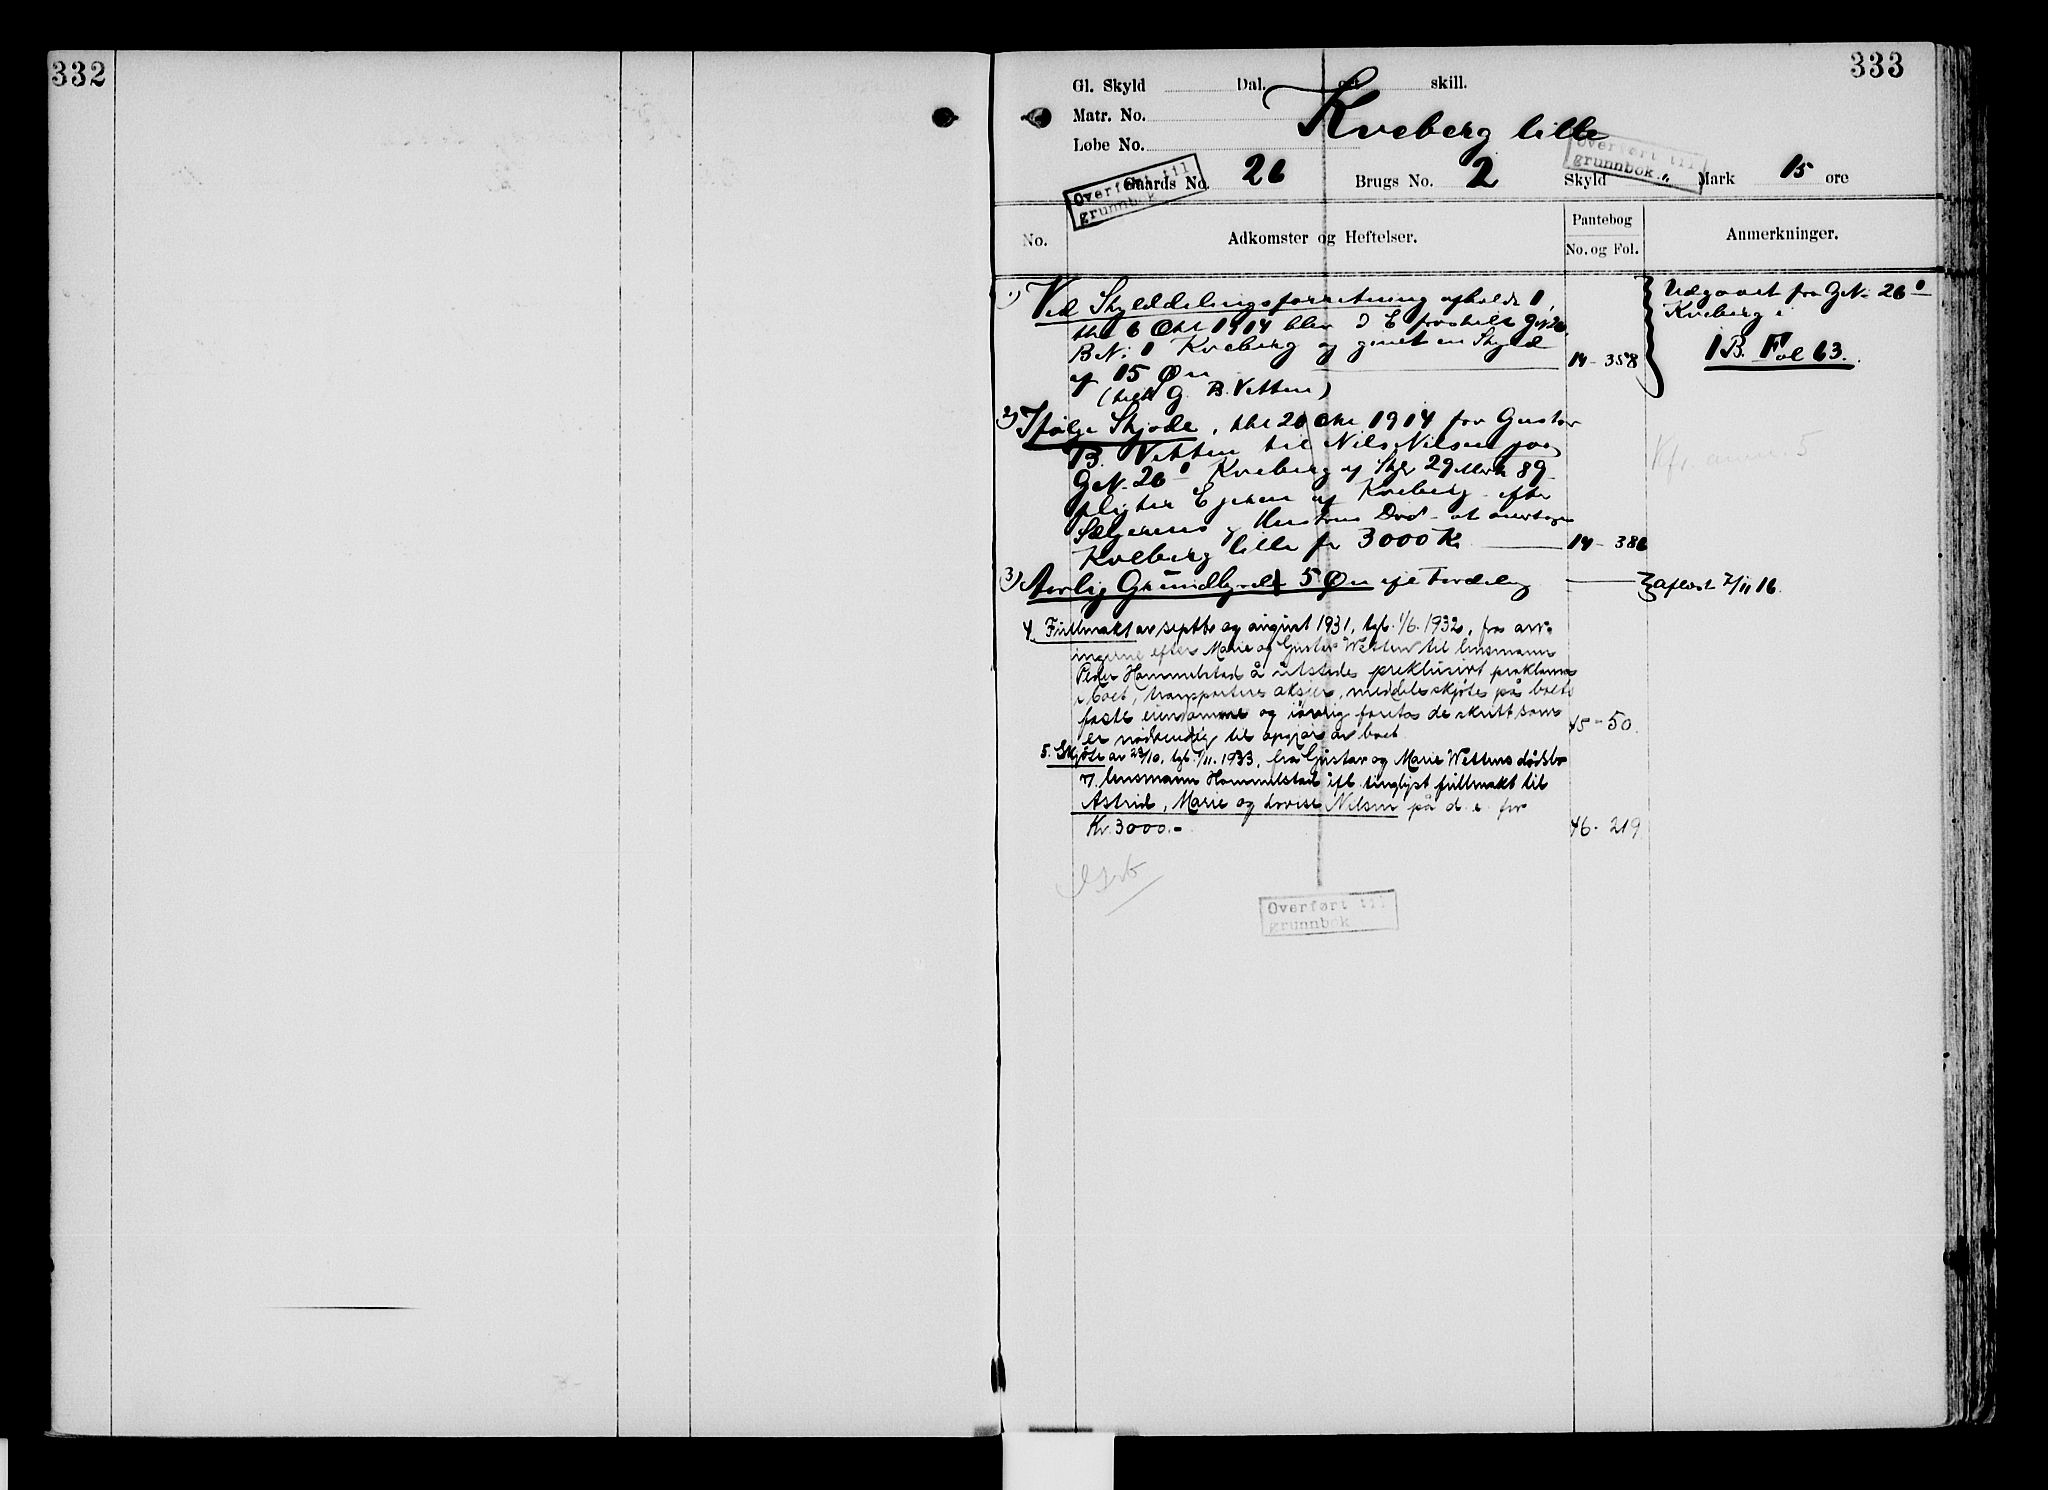 332
333
Gl. Skyld Dal. ort skill.
Matr. No.
Løbe No.
Kveberg lille
Overført til grunnbok
Overført til grunnbok
Gaards No. 26 Brugs No. 2 Skyld " Mark 15 øre
No. Adkomster og Heftelser. Pantebog No. og Fol. Anmerkninger.
1) Ved Skylddelingsforretning afholdt 1,
thl 6 Okt 1914 blev d E fraskilt GN 26
BN: 1 Kveberg og givet en Skyld
af 15 Øre 14 - 358
(till G. B. Vetten)
Udgaaet fra GN. 26 1
Kveberg i
1 B. Fol 63.
2) Ifølge Skjøde, thl 20 Okt 1914 fra Gustav
B. Vetten til Nils Nilsen paa
GN. 26 1 Kveberg af Skyld 29 Mark 89
pligter Ejeren af Kveberg efter
Sælgerens og Hustrus Død at overtage
Kveberg lille for 3000 Kr 14 - 386
Kfr. anm. 5
3) Aarlig Grundbyrde 5 Øre efl Fordeling aflæst 2/11 16.
4. Fullmakt av septbr og august 1931, tgl. 1/6. 1932, fra arv-
ingerne efter Marie og Gustav Wetten til lensmann
Peder Hammelstad å utstede preklusivt proklama
i boet, transportere aksjer, meddele skjøte på boets
faste eiendomme og iøvrig foreta de skritt som
er nødvendig til opgjør av boet. 45 - 50.
5. Skjøte av 28/10, tgl. 1/11. 1933, fra Gustav og Marie Wettens dødsbo
v/ lensmann Hammelstad ifl. tinglyst fullmakt til
Astrid, Marie og Lovise Nilsen på d. e. for
Kr. 3000.- 46 - 219
Overført til
grunnbok